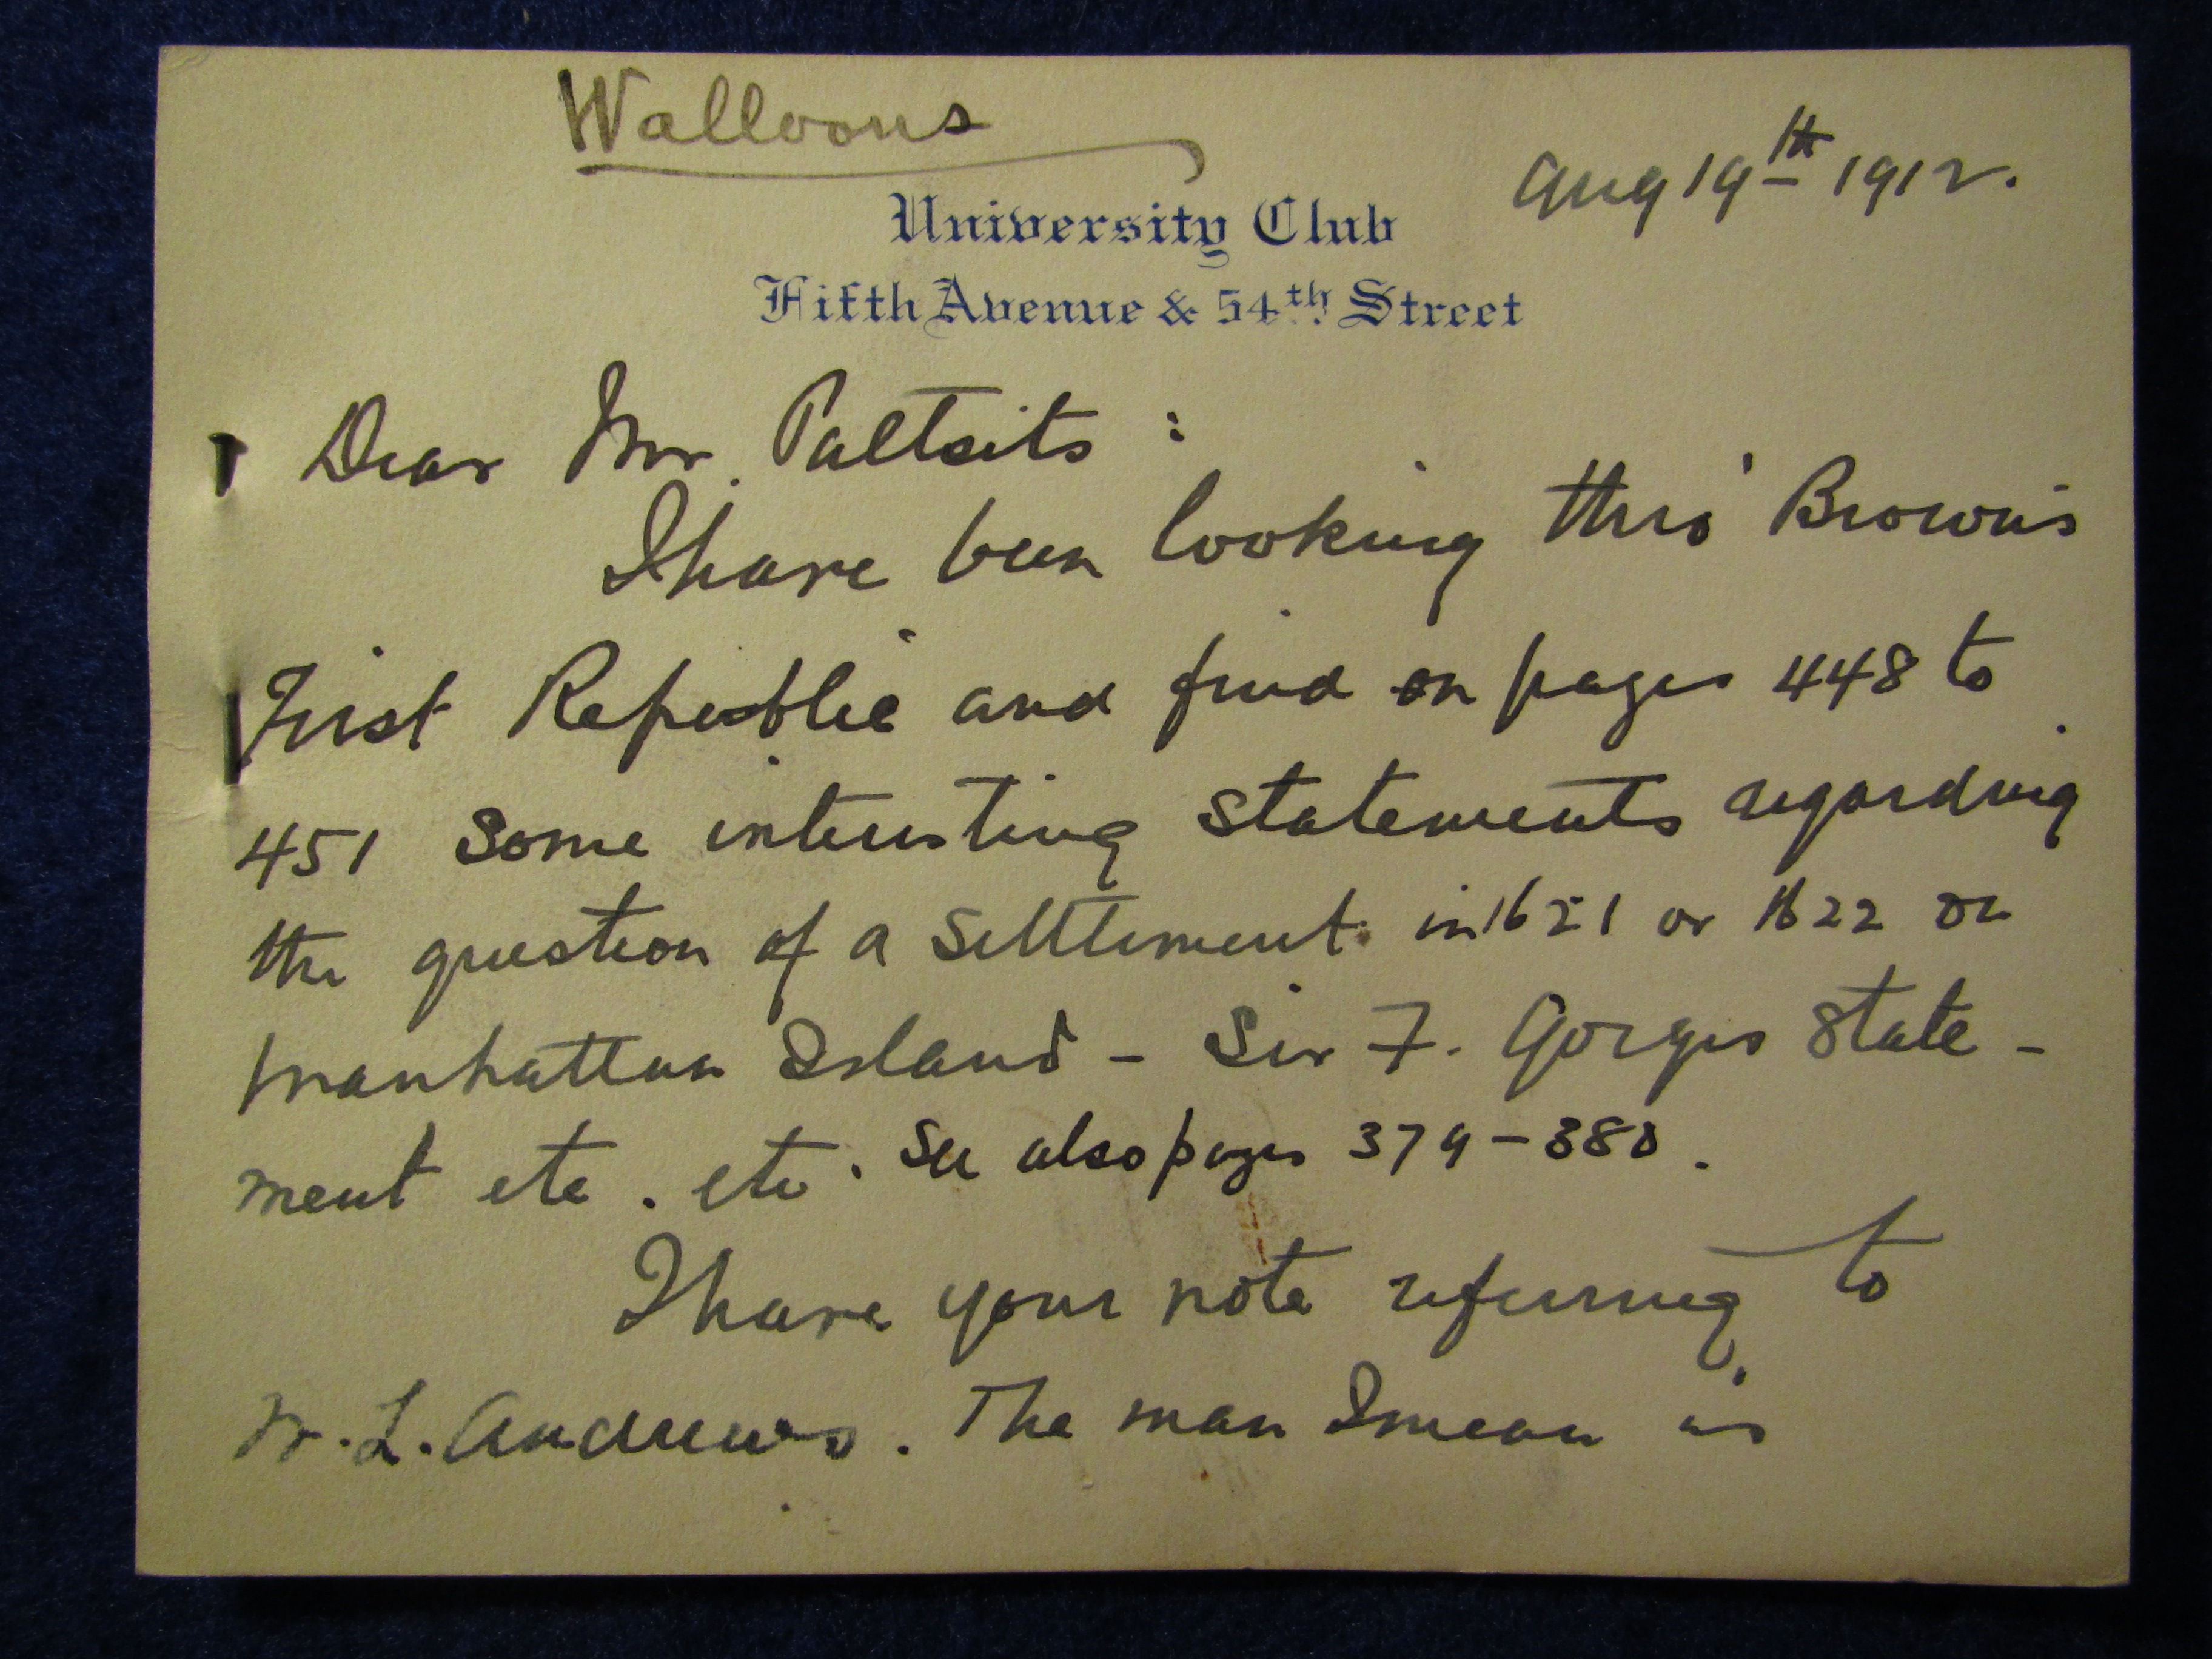 Walloons
Aug 19th 1912.
University Club
Fifth Avenue & 54th Street
Dear Mr. Paltsits:
I have been looking thro' Brown's
First Republic and find on pages 448 to
451 some interesting statements regarding
the question of a settlement in 1621 or 1622 on
Manhattan Island - Sir F. Gorges state-
ment etc. etc. See also pages 379-380.
I have your note referring to
W. L. Andrews. The man I mean is